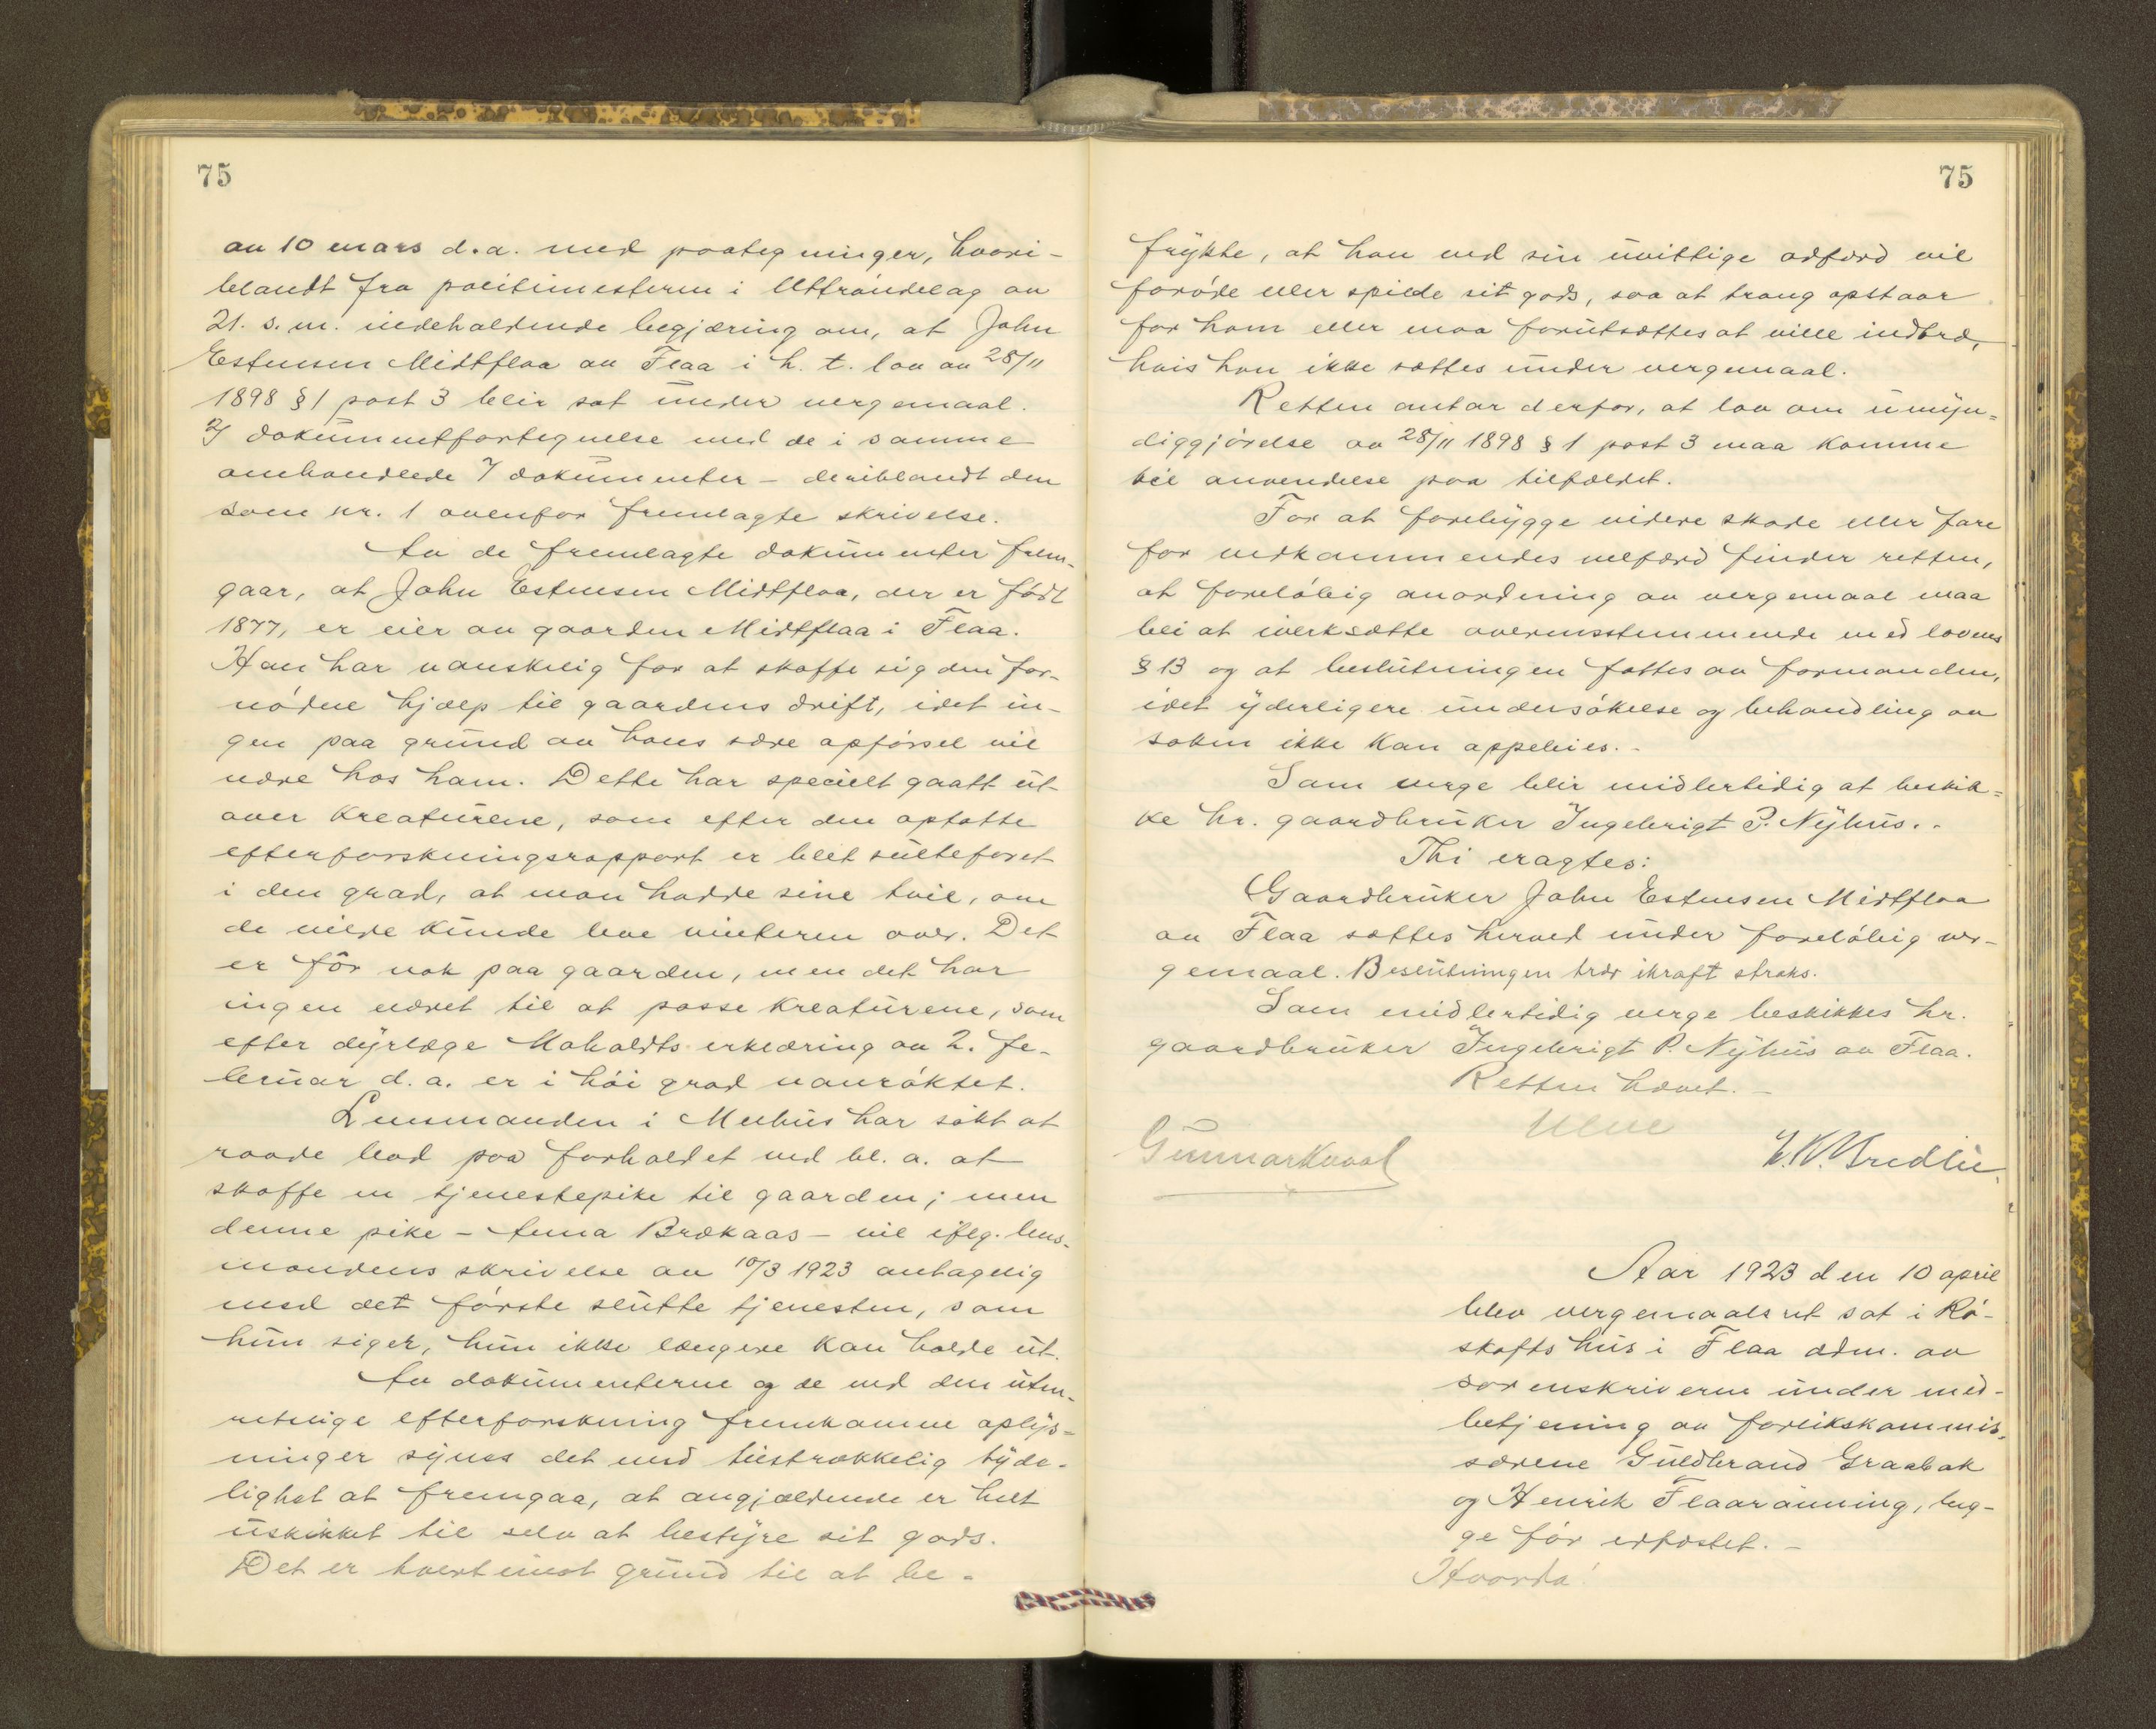 75
av 10 mars d.a. med paategninger, hvori-
blandt fra politimesteren i Uttröndelag av
21. s.m. indeholdende begjæring om, at John
Estensen Midtflaa av Flaa i h. t. lov av 28/11
1898 § 1 post 3 blir sat under vergemaal.
2/ dokumentfortegnelse med de i samme
omhandlede 7 dokumenter - deriblandt den
som nr. 1 ovenfor fremlagte skrivelse.
Av de fremlagte dokumenter frem-
gaar, at John Estensen Midtflaa, der er född
1877, er eier av gaarden Midtflaa i Flaa.
Han har vanskelig for at skaffe sig den for-
nödne hjælp til gaardens drift, idet in-
gen paa grund av hans sære opförsel vil
være hos ham. Dette har specielt gaatt ut-
over kreaturene, som efter den optatte
efterforskningsrapport er blet sulteforet
i den grad, at man hadde sine tvil, om
de vilde kunde leve vinteren over. Det
er fôr nok paa gaarden, men det har
ingen været til at passe kreaturene, som
efter dyrlæge Moholdts erklæring av 2. fe-
bruar d.a. er i höi grad vanröktet.
Lensmanden i Melhus har sökt at
raade bod paa forholdet ved bl. a. at
skaffe en tjenestepike til gaarden; men
denne pike - Anna Brækaas - vil iflg. lens-
mandens skrivelse av 10/3 1923 antagelig
med det förste slutte tjenesten, som
hun siger, hun ikke længere kan holde ut.
Av dokumenterne og de ved den uten-
retslige efterforskning fremkomne oplys-
ninger synes det med tilstrækkelig tyde-
lighet at fremgaa, at angjældende er helt
uskikket til selv at bestyre sit gods.
Det er tvertimot grund til at be-
75
frykte, at han ved sin uvittige adfærd vil
foröde eller spilde sit gods, saa at trang opstaar
for ham eller maa forutsættes at ville indtræ,
hvis han ikke sættes under vergemaal.
Retten antar derfor, at lov om umyn-
diggjörelse av 28/11 1898 § 1 post 3 maa komme
til anvendelse paa tilfældet.
For at forebygge videre skade eller fare
for vedkommendes velfærd finder retten,
at forelöbig anordning av vergemaal maa
bli at iverksætte overensstemmende med lovens
§ 13 og at beslutningen fattes av formanden,
idet yderligere undersökelse og behandling av
saken ikke kan oppebies. -
Som verge blir midlertidig at beskik-
ke hr. gaardbruker Ingebrigt P. Nyhus. -
Thi eragtes:
Gaardbruker John Estensen Midtflaa
av Flaa sættes herved under forelöbig ver-
gemaal. Beslutningen trær ikraft straks.
Som midlertidig verge beskikkes hr.
gaardbruker Ingebrigt P. Nyhus av Flaa.
Retten hævet. -
Gunnar Kvaal
Aar 1923 den 10 april
blev vergemaalsret sat i Rö-
skafts hus i Flaa adm. av
sorenskriveren under med-
betjening av forlikskommis-
særene Guldbrand Graabak
og Henrik Flaarönning, beg-
ge för edfæstet. -
Hvorda: